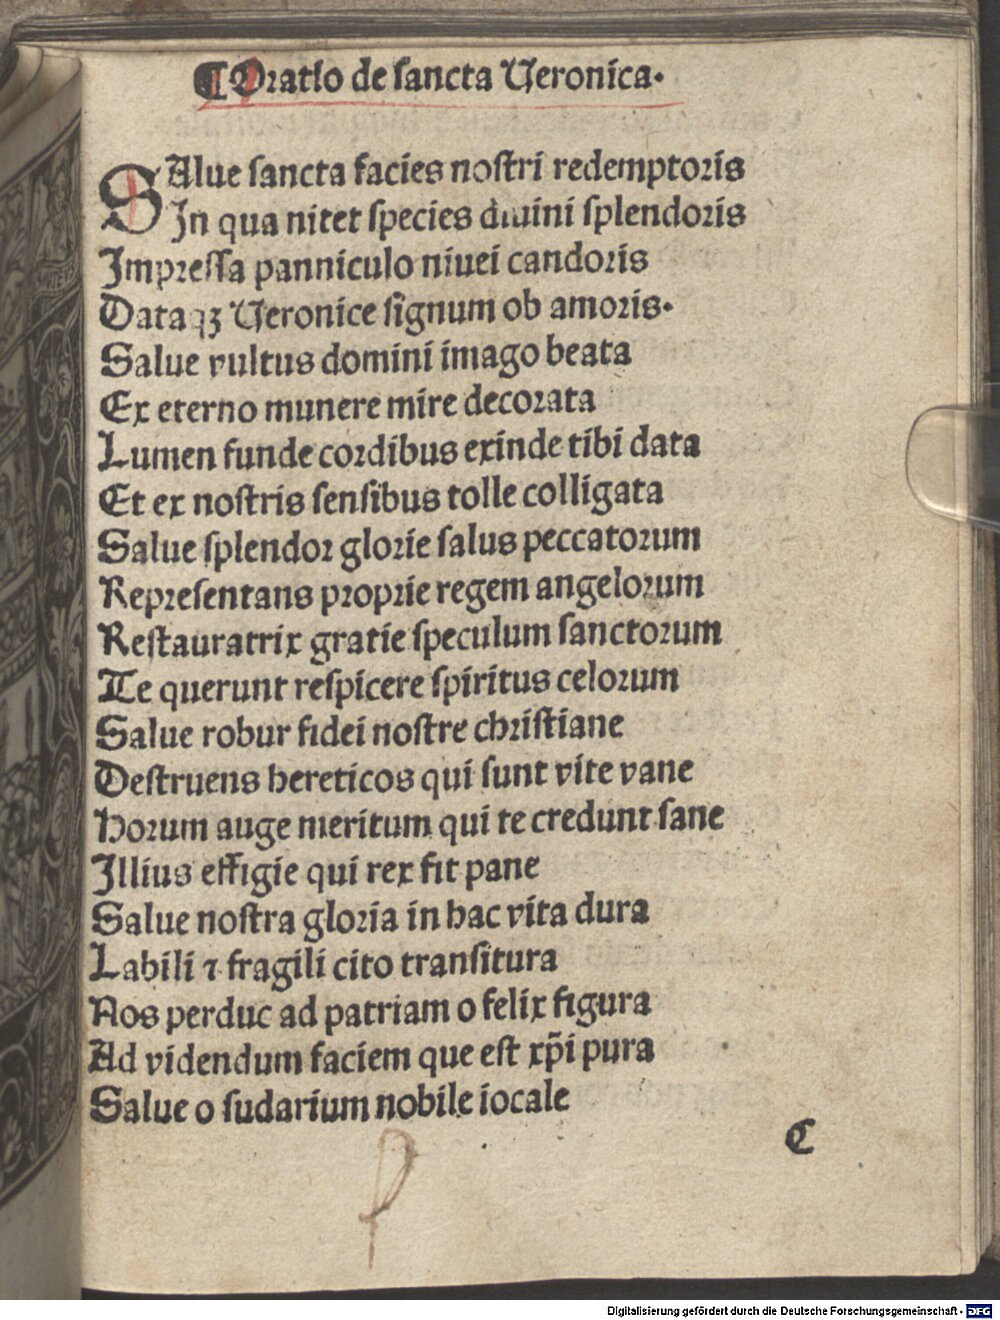 ¶ Oratio de sancta Ueronica.
SAlue sancta facies nostri redemptoris
In qua nitet species diuini splendoris
Impressa panniculo niuei candoris
Dataqꝫ Ueronice signum ob amoris.
Salue vultus domini imago beata
Ex eterno munere mire decorata
Lumen funde cordibus exinde tibi data
Et ex nostris sensibus tolle colligata
Salue splendor glorie salus peccatorum
Representans proprie regem angelorum
Restauratrix gratie speculum sanctorum
Te querunt respicere spiritus celorum
Salue robur fidei nostre christiane
Destruens hereticos qui sunt vite vane
Horum auge meritum qui te credunt sane
Illius effigie qui rex fit pane
Salue nostra gloria in hac vita dura
Labili ⁊ fragili cito transitura
Nos perduc ad patriam o felix figura
Ad videndum faciem que est xp̄i pura
Salue o sudarium nobile iocale
C
Digitalisierung gefördert durch die Deutsche Forschungsgemeinschaft - DFG